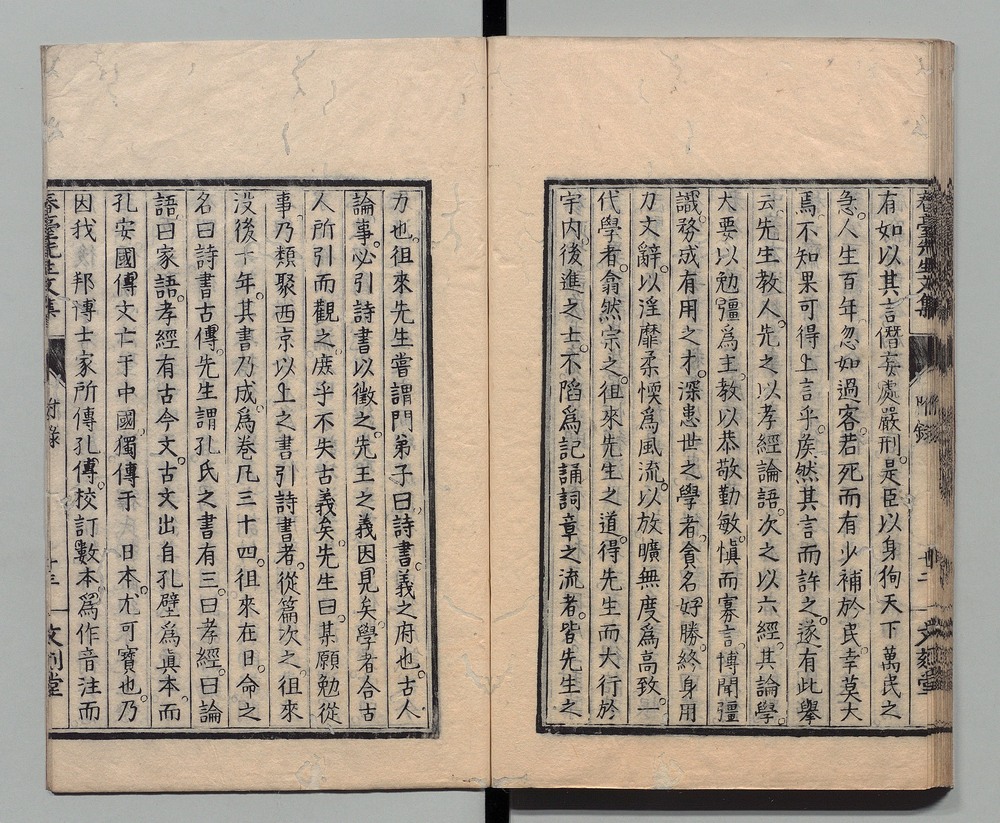 有如以其言僭妄處嚴刑。是臣以身狥天下萬民之
急。人生百年。忽如過客。若死而有少補於民。幸莫大
焉。不知果可得上言乎。矦然其言而許之。遂有此擧
云。先生教人。先之以孝經論語。次之以六經。其論學。
大要以勉彊爲主。教以恭敬勤敏。愼而寡言。博聞彊
識。務成有用之才。深患世之學者。貪名好勝。終身用
力文辭。以淫靡柔愞爲風流。以放曠無度爲高致。一
代學者。翕然宗之。徂來先生之道。得先生而大行於
宇内。後進之士。不陷爲記誦詞章之流者。皆先生之
力也。徂來先生嘗謂門弟子曰。詩書。義之府也。古人
論事。必引詩書以徵之。先王之義因見矣。學者合古
人所引而觀之。庶乎不失古義矣。先生曰。某願勉從
事。乃類聚西京以上之書引詩書者。從篇次之。徂來
沒後十年。其書乃成。爲卷凡三十四。徂來在日。命之
名曰詩書古傳。先生謂孔氏之書有三。曰孝經。曰論
語。曰家語。孝經有古今文。古文出自孔壁爲眞本。而
孔安國傳文亡于中國。獨傳于 日本。尤可寶也。乃
因我 邦博士家所傳孔傳。校訂數本。爲作音注而
春臺先生文集
附錄
十三
文刻堂